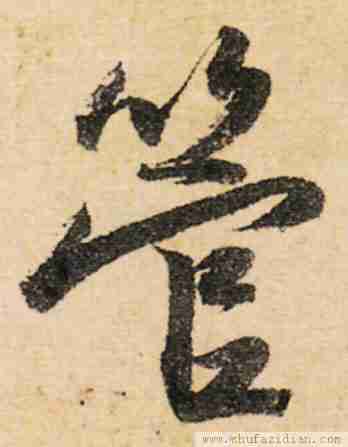 管
www.shufazidian.com